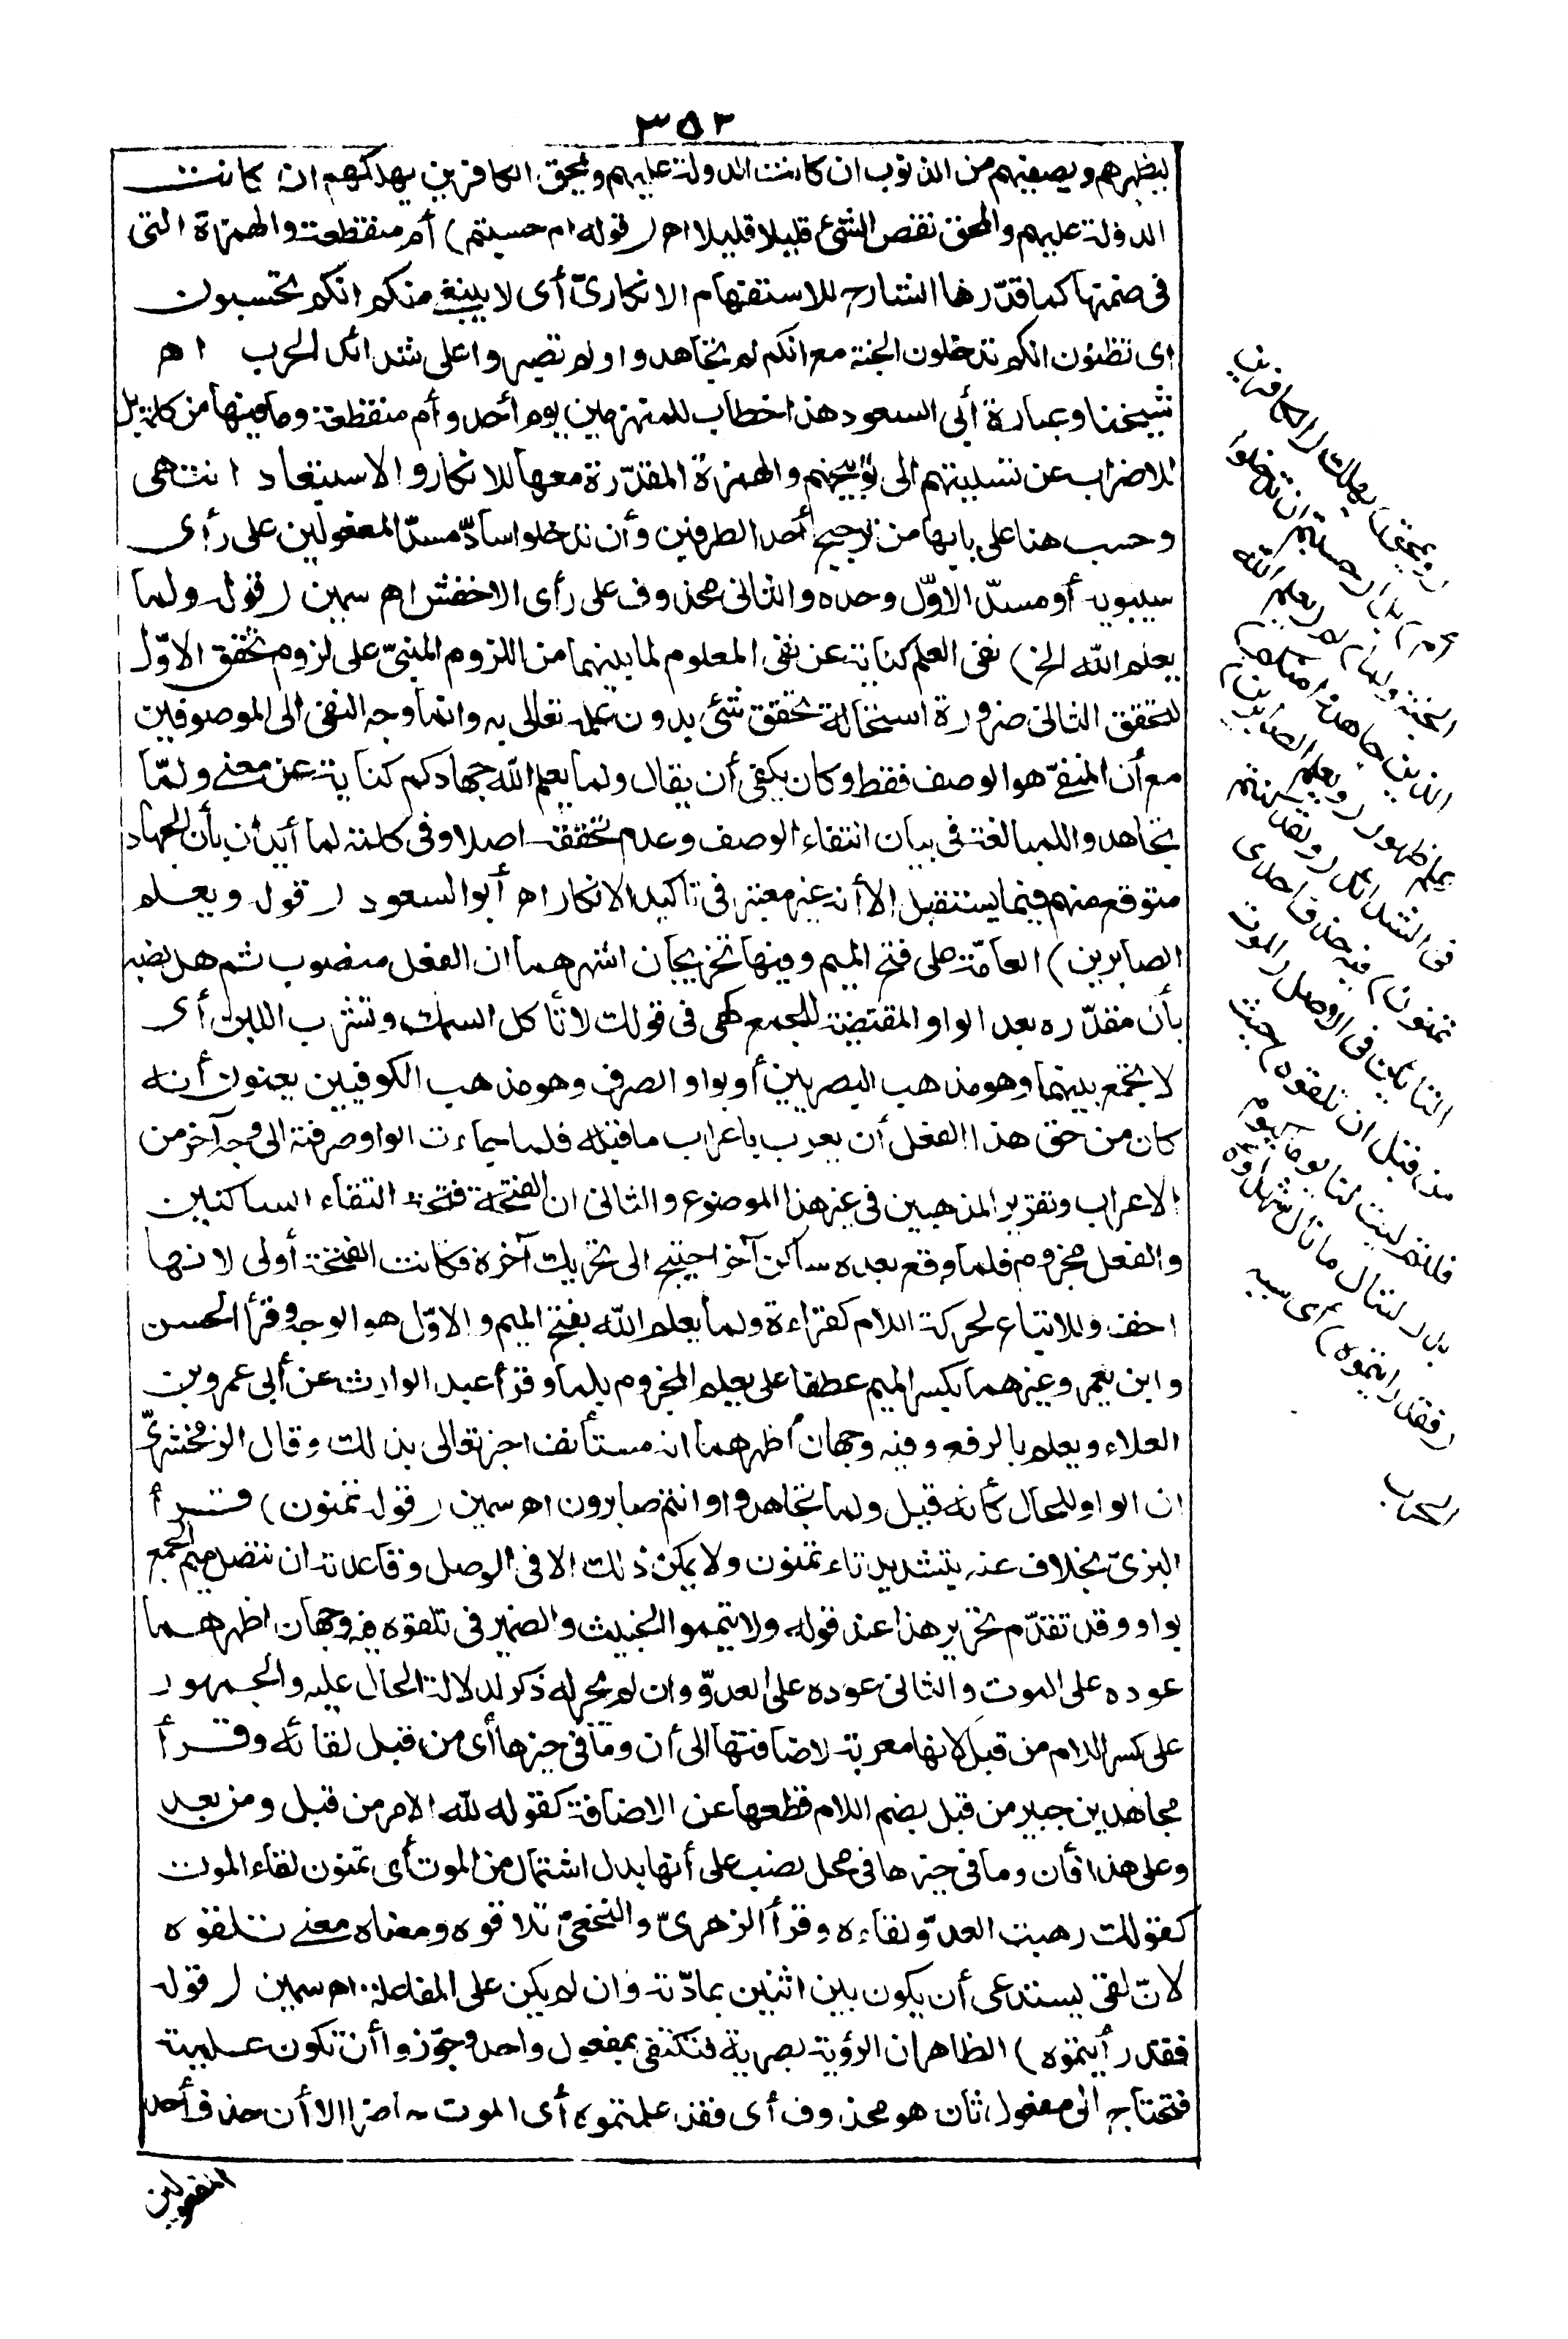 ٣٥٢
ليطهرهم ويصفيهم من الذنوب ان كانت الدولة عليهم ويمحق الكافرين يهلكهم ان كانت
الدولة عليهم والمحق نقص الشئ قليلا قليلا اه (قوله ام حسبتم) أم منقطعة والهمزة التى
فى ضمنها كما قدّرها الشارح للاستفهام الانكارىّ أى لا ينبغى منكم انكم تحسبون
اى تظنون انكم تدخلون الجنة مع انكم لم تجاهدوا ولم تصبروا على شدائد الحرب اه
شيخنا وعبارة أبى السعود هذا خطاب للمنهزمين يوم أحد وأم منقطعة وما فيها من كلمة بل
للاضراب عن تسليتهم الى توبيخهم والهمزة المقدّرة معها للانكار والاستبعاد انتهى
وحسب هنا على بابها من ترجيح أحد الطرفين وأن تدخلوا سادّ مسدّ المفعولين على رأى
سيبويه أو مسدّ الاوّل وحده والثانى محذوف على رأى الاخفش اه سمين (قوله ولما
يعلم الله الخ) نفى العلم كناية عن نفى المعلوم لما بينهما من اللزوم المبنىّ على لزوم تحقق الاوّل
لتحقق الثانى ضرورة استحالة تحقق شئ بدون علمه تعالى به وانما وجه النفى الى الموصوفين
مع أن المنفىّ هو الوصف فقط وكان يكفى أن يقال ولما يعلم الله جهادكم كناية عن معنى ولمّا
تجاهدوا للمبالغة فى بيان انتفاء الوصف وعدم تحققه اصلا وفى كلمة لما أيذان بأن الجهاد
متوقع منهم فيما يستقبل الا أنه غير معتبر فى تأكيد الانكار اه أبو السعود (قوله ويعلم
الصابرين) العامّة على فتح الميم وفيها تخريجان اشهرهما ان الفعل منصوب ثم هل نصبه
بأن مقدّره بعد الواو المقتضية للجمع كهى فى قولك لا تأكل السمك وتشرب اللبن أى
لا تجمع بينهما وهو مذهب البصريين أو بواو الصرف وهو مذهب الكوفيين يعنون أنه
كان من حق هذا الفعل أن يعرب باعراب ما قبله فلما جاءت الواو صرفته الى وجه آخر من
الاعراب وتقرير المذهبين فى غير هذا الموضوع والثانى ان الفتحة فتحة التقاء الساكنين
والفعل مجزوم فلما وقع بعده ساكن آخر احتيج الى تحريك آخره فكانت الفتحة أولى لانها
اخف وللاتباع لحركة اللام كقراءة ولما يعلم الله بفتح الميم والاوّل هو الوجه وقرأ الحسن
وابن يعمر وغيرهما بكسر الميم عطفا على يعلم المجزوم بلما وقرأ عبد الوارث عن أبى عمرو بن
العلاء ويعلم بالرفع وفيه وجهان أظهرهما انه مستأنف اخبر تعالى بذلك وقال الزمخشرىّ
ان الواو للحال كأنه قيل ولما تجاهدوا وانتم صابرون اه سمين (قوله تمنون) قرأ
البزىّ بخلاف عنه بتشديد تاء تمنون ولا يمكن ذلك الا فى الوصل وقاعدته ان تتصل ميم الجمع
بواو وقد تقدّم تحرير هذا عند قوله ولا تيمموا الخبيث والضمير فى تلقوه فيه وجهان اظهرهما
عوده على الموت والثانى عوده على العدوّ وان لم يجر له ذكر لدلالة الحال عليه والجمهور
على كسر اللام من قبل لانها معربة لاضافتها الى أن وما فى حيزها أى من قبل لقائه وقرأ
مجاهد بن جبير من قبل بضم اللام قطعها عن الاضافة كقوله لله الامر من قبل ومن بعد
وعلى هذا فأن وما فى حيزها فى محل نصب على أنها بدل اشتمال من الموت أى تمنون لقاء الموت
كقولك رهبت العدوّ لقاءه وقرأ الزهرىّ والنخعىّ تلاقوه ومعناه معنى تلقوه
لانّ لقى يستدعى أن يكون بين اثنين بمادّته وان لم يكن على المفاعلة اه سمين (قوله
فقد رأيتموه) الظاهر ان الرؤية بصرية فتكتفى بمفعول واحد وجوّزوا أن تكون علمية
فتحتاج الى مفعول ثان هو محذوف أى فقد علمتموه أى الموت حاضرا الا أن حذف أحد
المفعولين
(ويمحق) يهلك (الكافرين
أم) بل (حسبتم ان تدخلوا
الجنة ولما) لم (يعلم الله
الذين جاهدوا منكم)
علم ظهور (ويعلم الصابرين)
فى الشدائد (ولقد كنتم
تمنون) فيه حذف احدى
التائين فى الاصل (الموت
من قبل ان تلقوه) حيث
قلتم ليت لنا يوما كيوم
بدر لننال ما نال شهداؤه
(فقد رأيتموه) أى سببه
الحرب